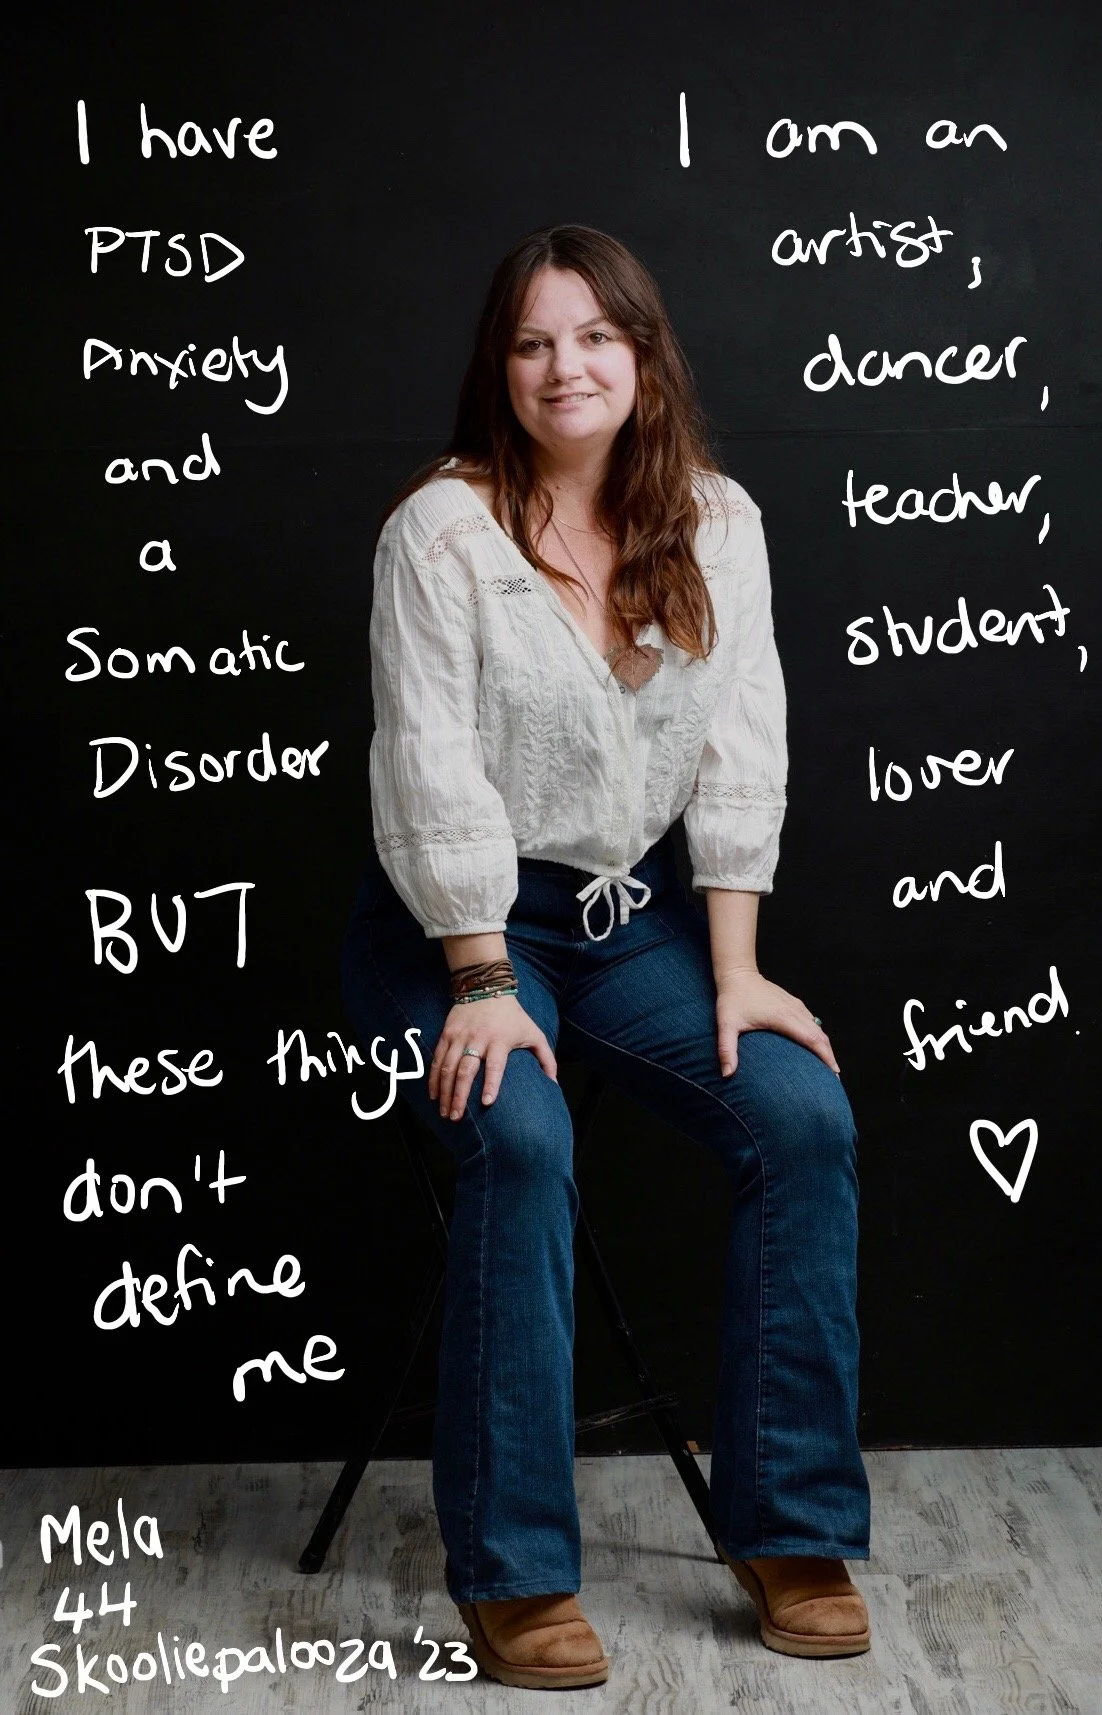 I have
PTSD
Anxiety
and
a
Somatic
Disorder
BUT
these things
don't
define
me
I am an
artist,
dancer,
teacher,
student,
lover
and
friend.
Mela
44
Skooliepalooza '23